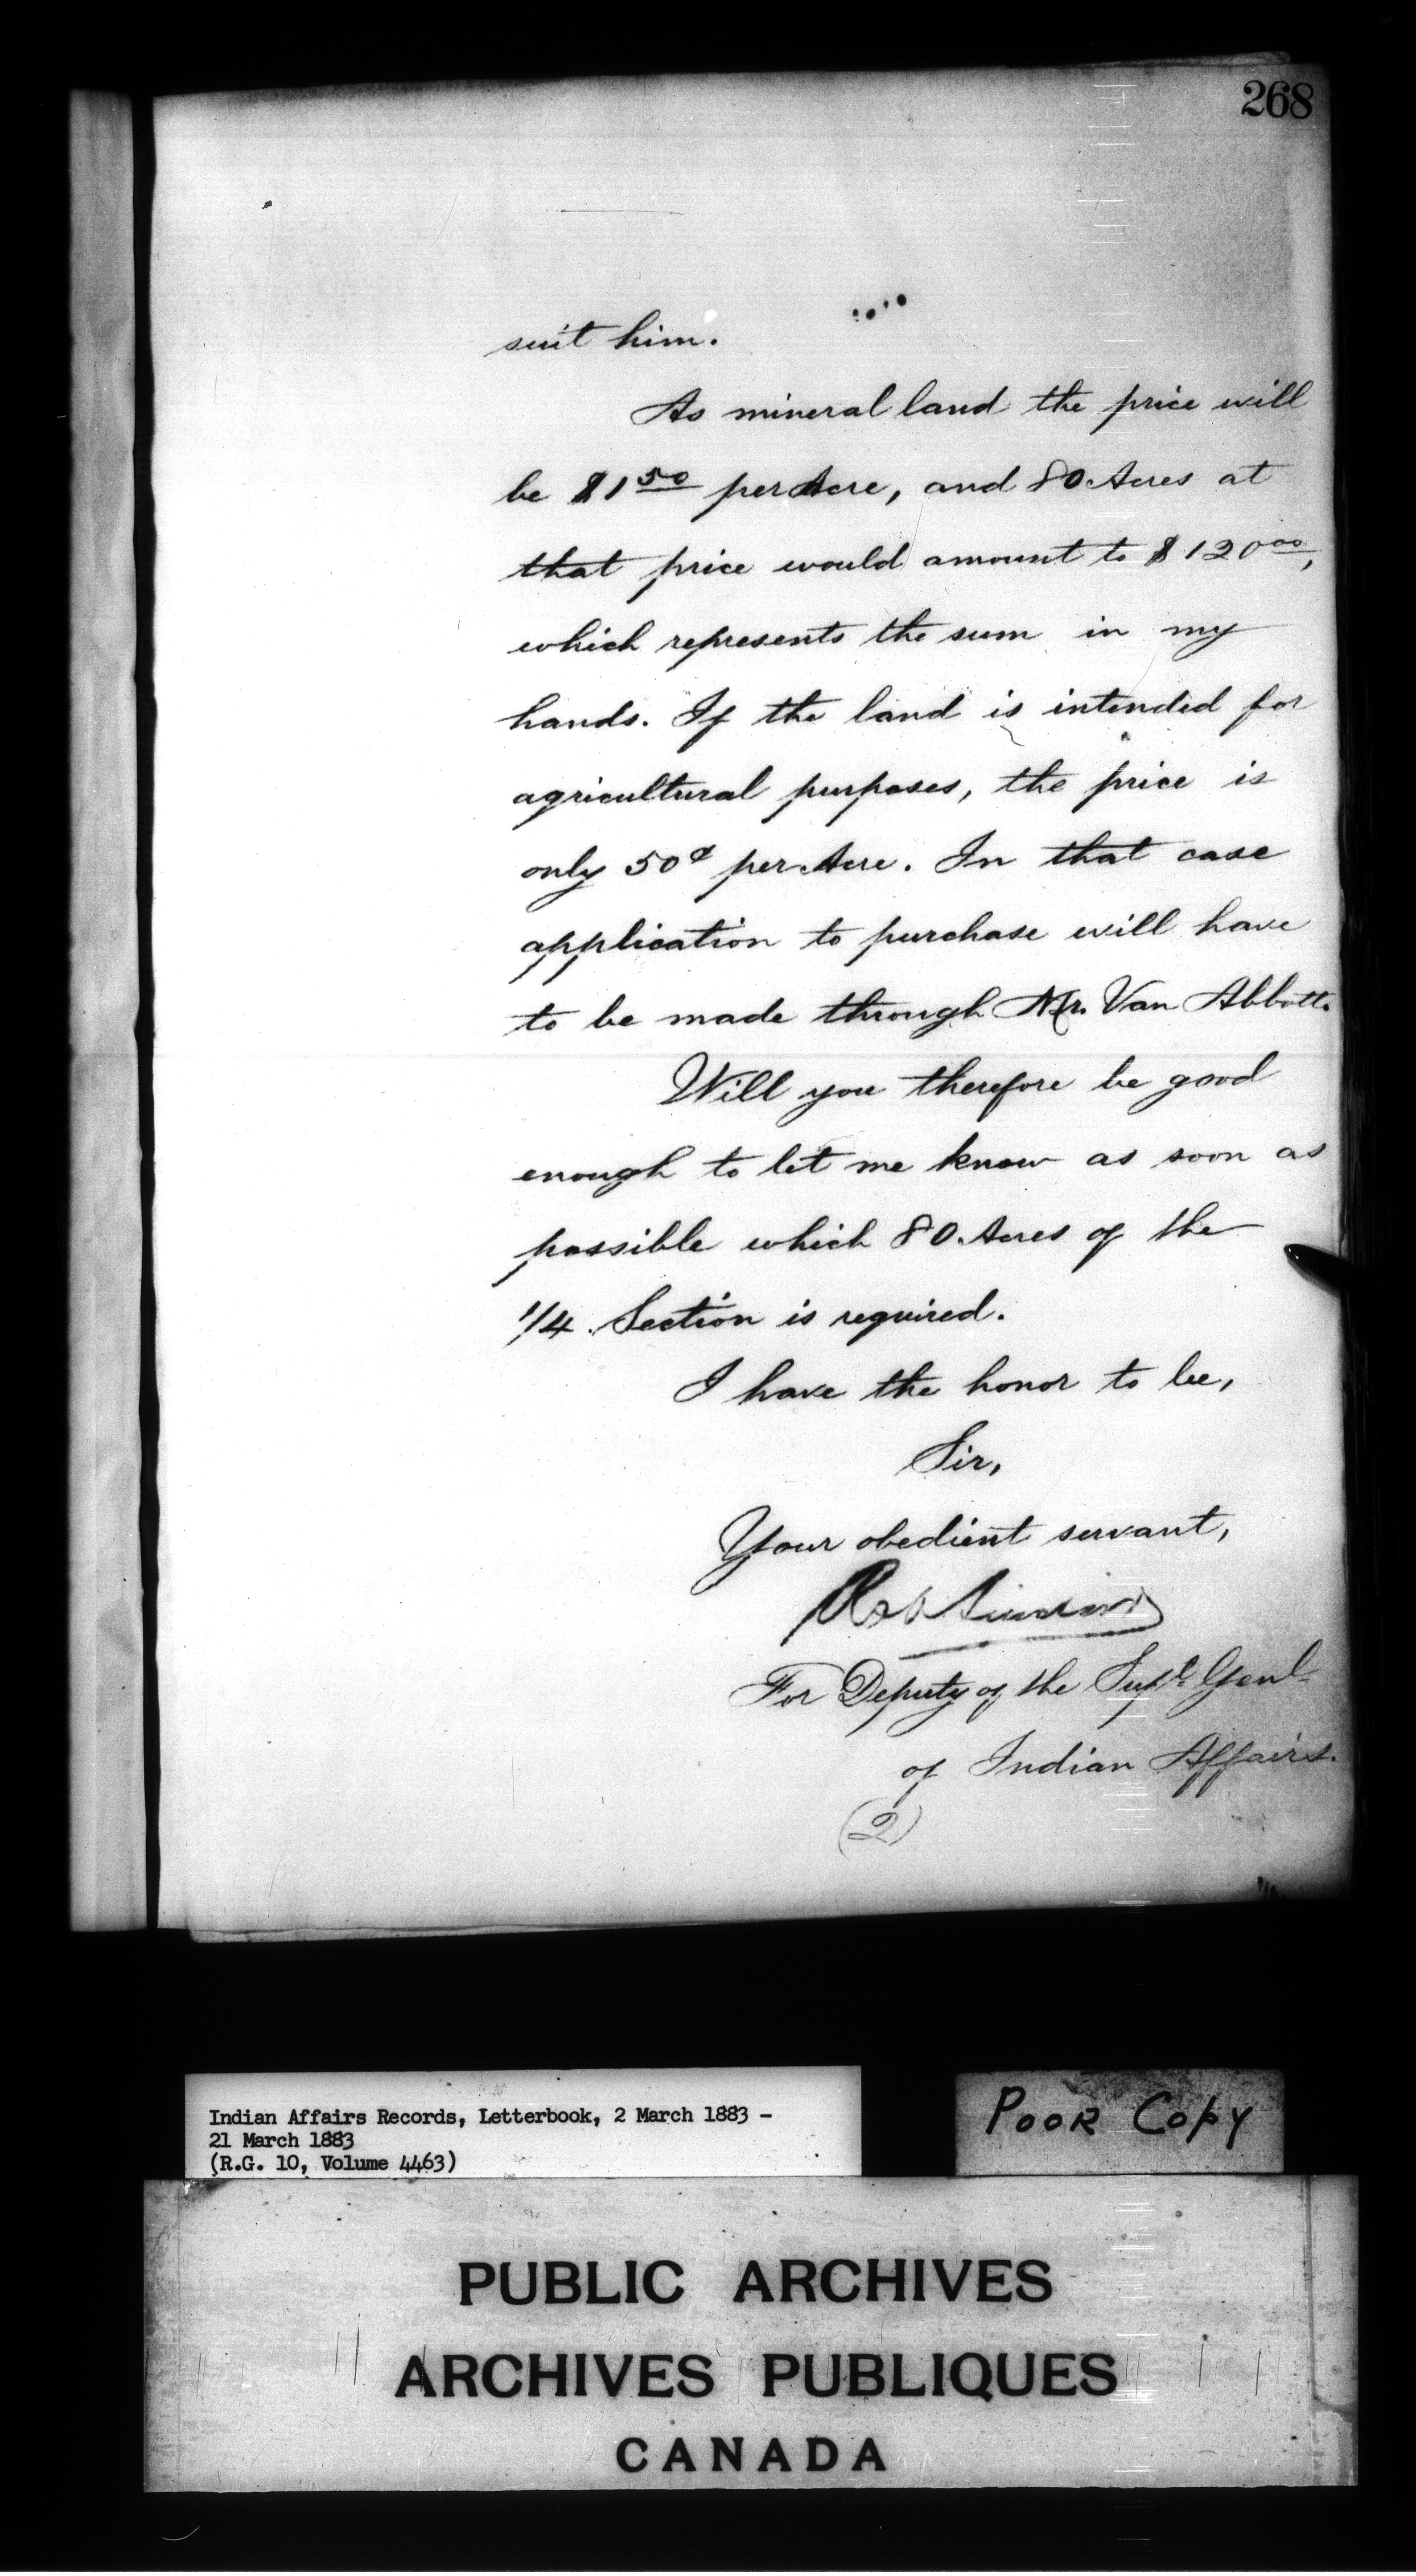 268
suit him.
As mineral land the price will
be $1 50 per Acre, and 80 Acres at
that price would amount to $120 00,
which represents the sum in my
hands. If the land is intended for
agricultural purposes, the price is
only 50¢ per Acre. In that case
application to purchase will have
to be made through Mr. Van Abbott.
Will you therefore be good
enough to let me know as soon as
possible which 80 Acres of the
1/4 Section is required.
I have the honor to be,
Sir,
Your obedient servant,
For Deputy of the Supt. Genl.
of Indian Affairs.
(2)
Indian Affairs Records, Letterbook, 2 March 1883 -
21 March 1883
(R.G. 10, Volume 4463)
POOR COPY
PUBLIC ARCHIVES
ARCHIVES PUBLIQUES
CANADA